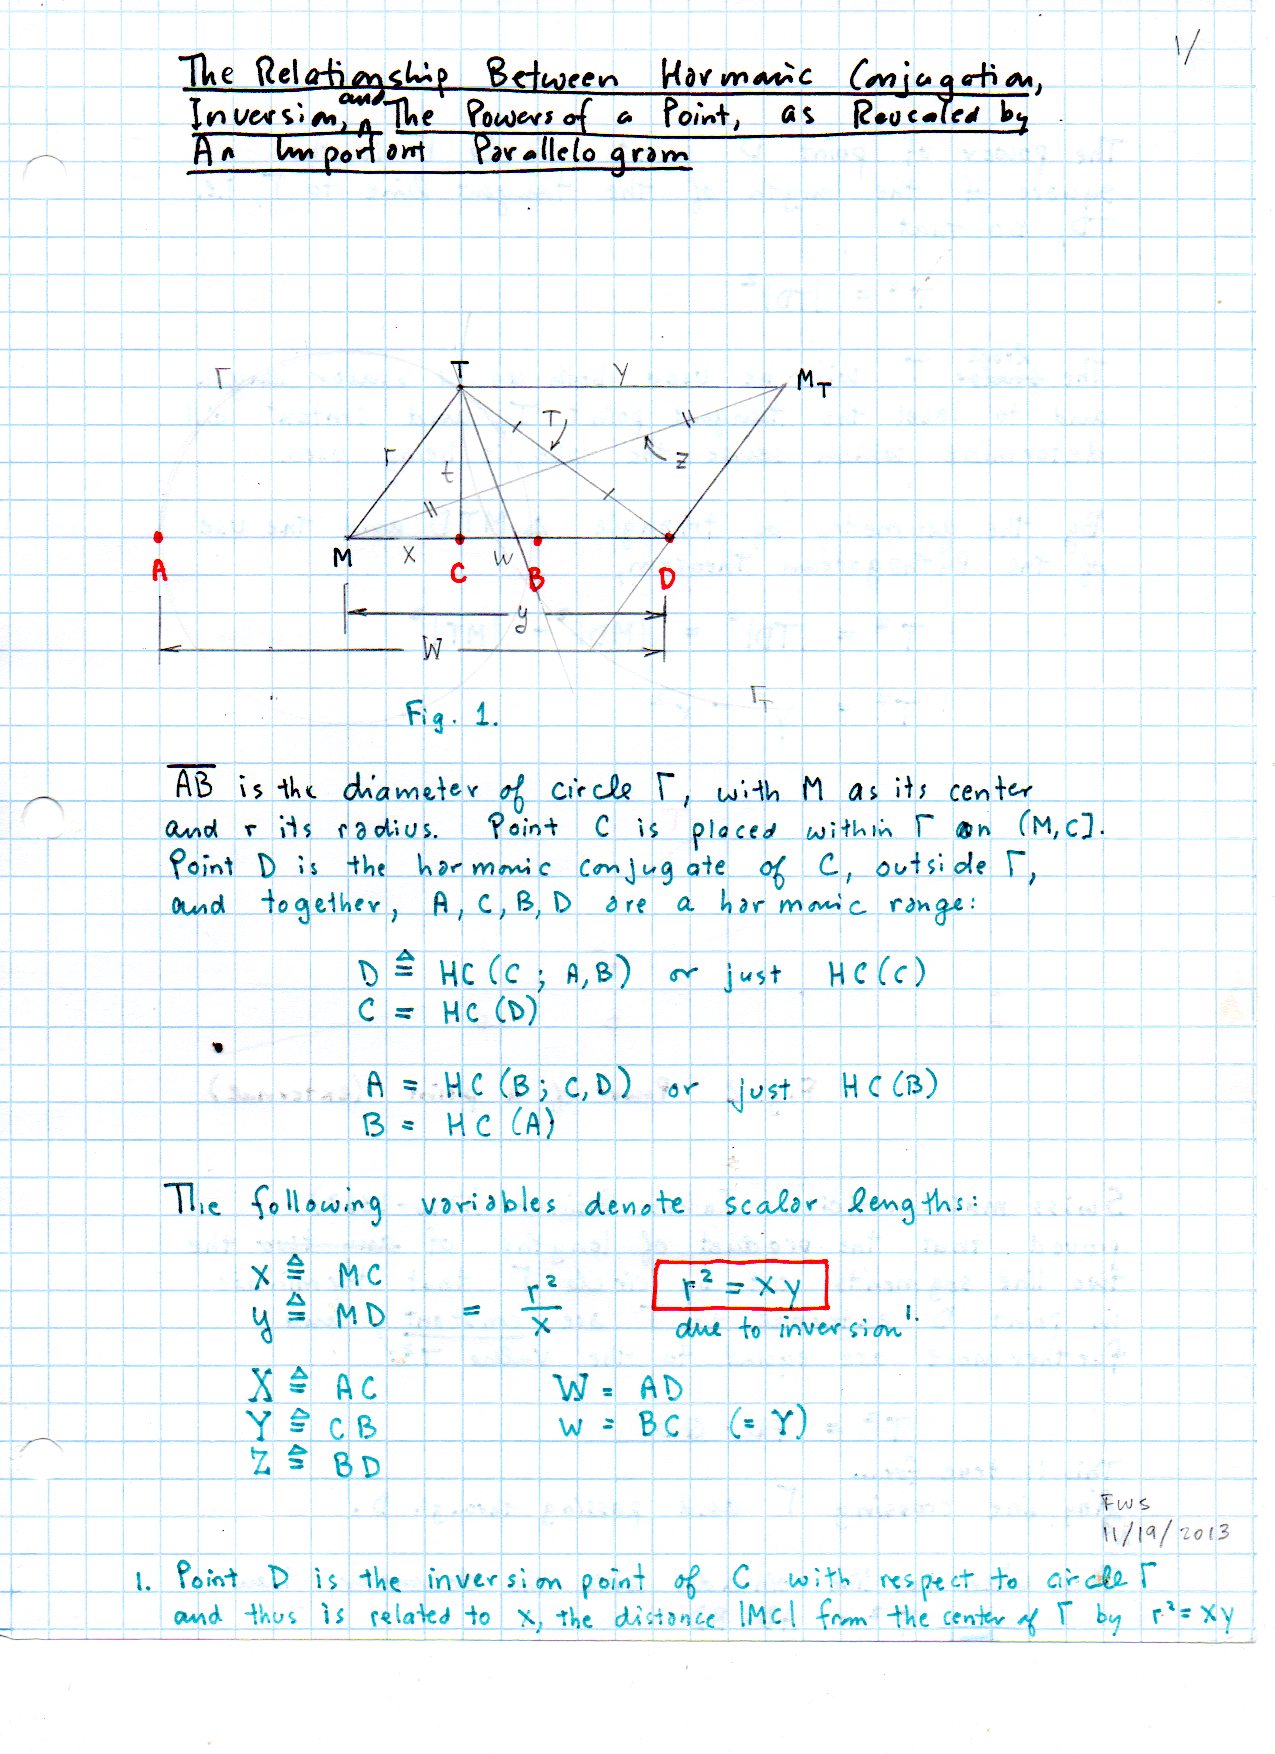 1/
The Relationship Between Harmonic Conjugation,
Inversion, and The Powers of a Point, as Revealed by
An Important Parallelogram
Γ
T
y
M_T
T
r
t
z
M
x
C
w
B
D
A
y
W
Γ_T
Fig. 1.
AB is the diameter of circle Γ, with M as its center
and r its radius. Point C is placed within Γ on (M,C].
Point D is the harmonic conjugate of C, outside Γ,
and together, A, C, B, D are a harmonic range:
D ≙ HC (C ; A, B) or just HC (C)
C = HC (D)
A = HC (B ; C, D) or just HC (B)
B = HC (A)
The following variables denote scalar lengths:
x ≙ MC
y ≙ MD = r²/x r² = xy
due to inversion¹.
X ≙ AC W = AD
Y ≙ CB w = BC (= Y)
Z ≙ BD
FWS
11/19/2013
1. Point D is the inversion point of C with respect to circle Γ
and thus is related to x, the distance |MC| from the center of Γ by r² = xy